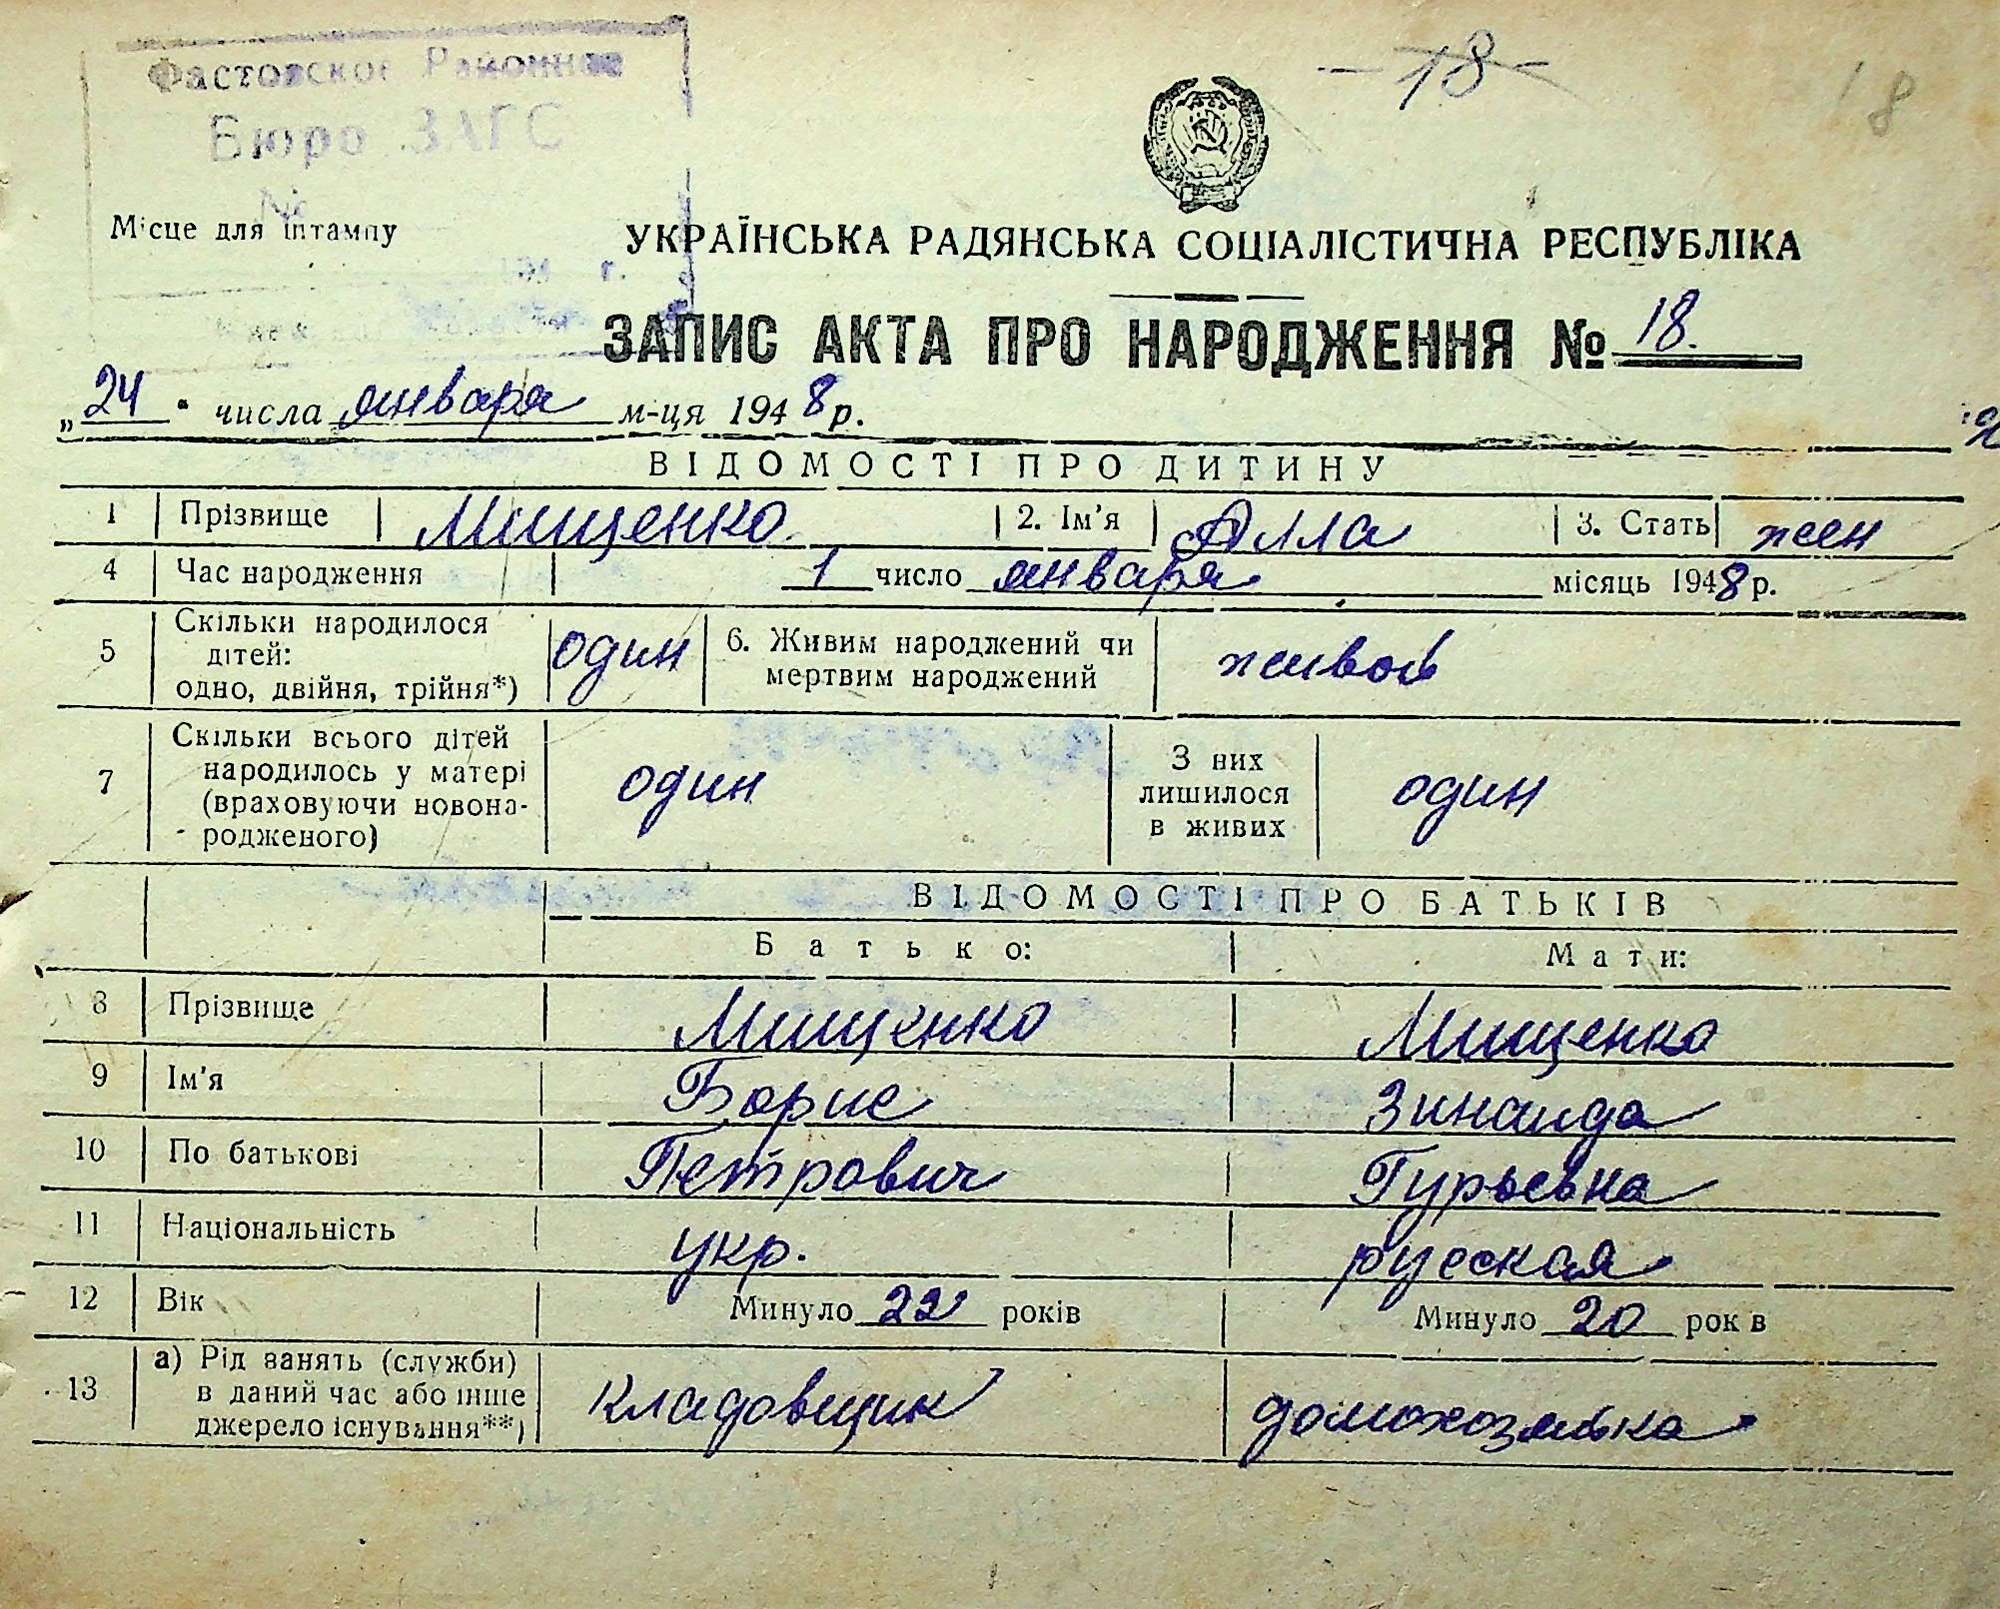 Фастовское Районное
Бюро ЗАГС
№
194 г.
18
18
Місце для штампу
УКРАЇНСЬКА РАДЯНСЬКА СОЦІАЛІСТИЧНА РЕСПУБЛІКА
ЗАПИС АКТА ПРО НАРОДЖЕННЯ № 18.
„24" числа января м-ця 1948 р.
ВІДОМОСТІ ПРО ДИТИНУ
1 Прізвище Мищенко 2. Ім'я Алла 3. Стать жен
4 Час народження 1 число января місяць 1948 р.
5 Скільки народилося дітей: одно, двійня, трійня*) один 6. Живим народжений чи мертвим народжений живой
7 Скільки всього дітей народилось у матері (враховуючи новона-родженого) один З них лишилося в живих один
ВІДОМОСТІ ПРО БАТЬКІВ
Батько: Мати:
8 Прізвище Мищенко Мищенко
9 Ім'я Борис Зинаида
10 По батькові Петрович Гурьевна
11 Національність укр. русская
12 Вік Минуло 22 років Минуло 20 рок в
13 а) Рід занять (служби) в даний час або інше джерело існування**) кладовщик домохозяйка